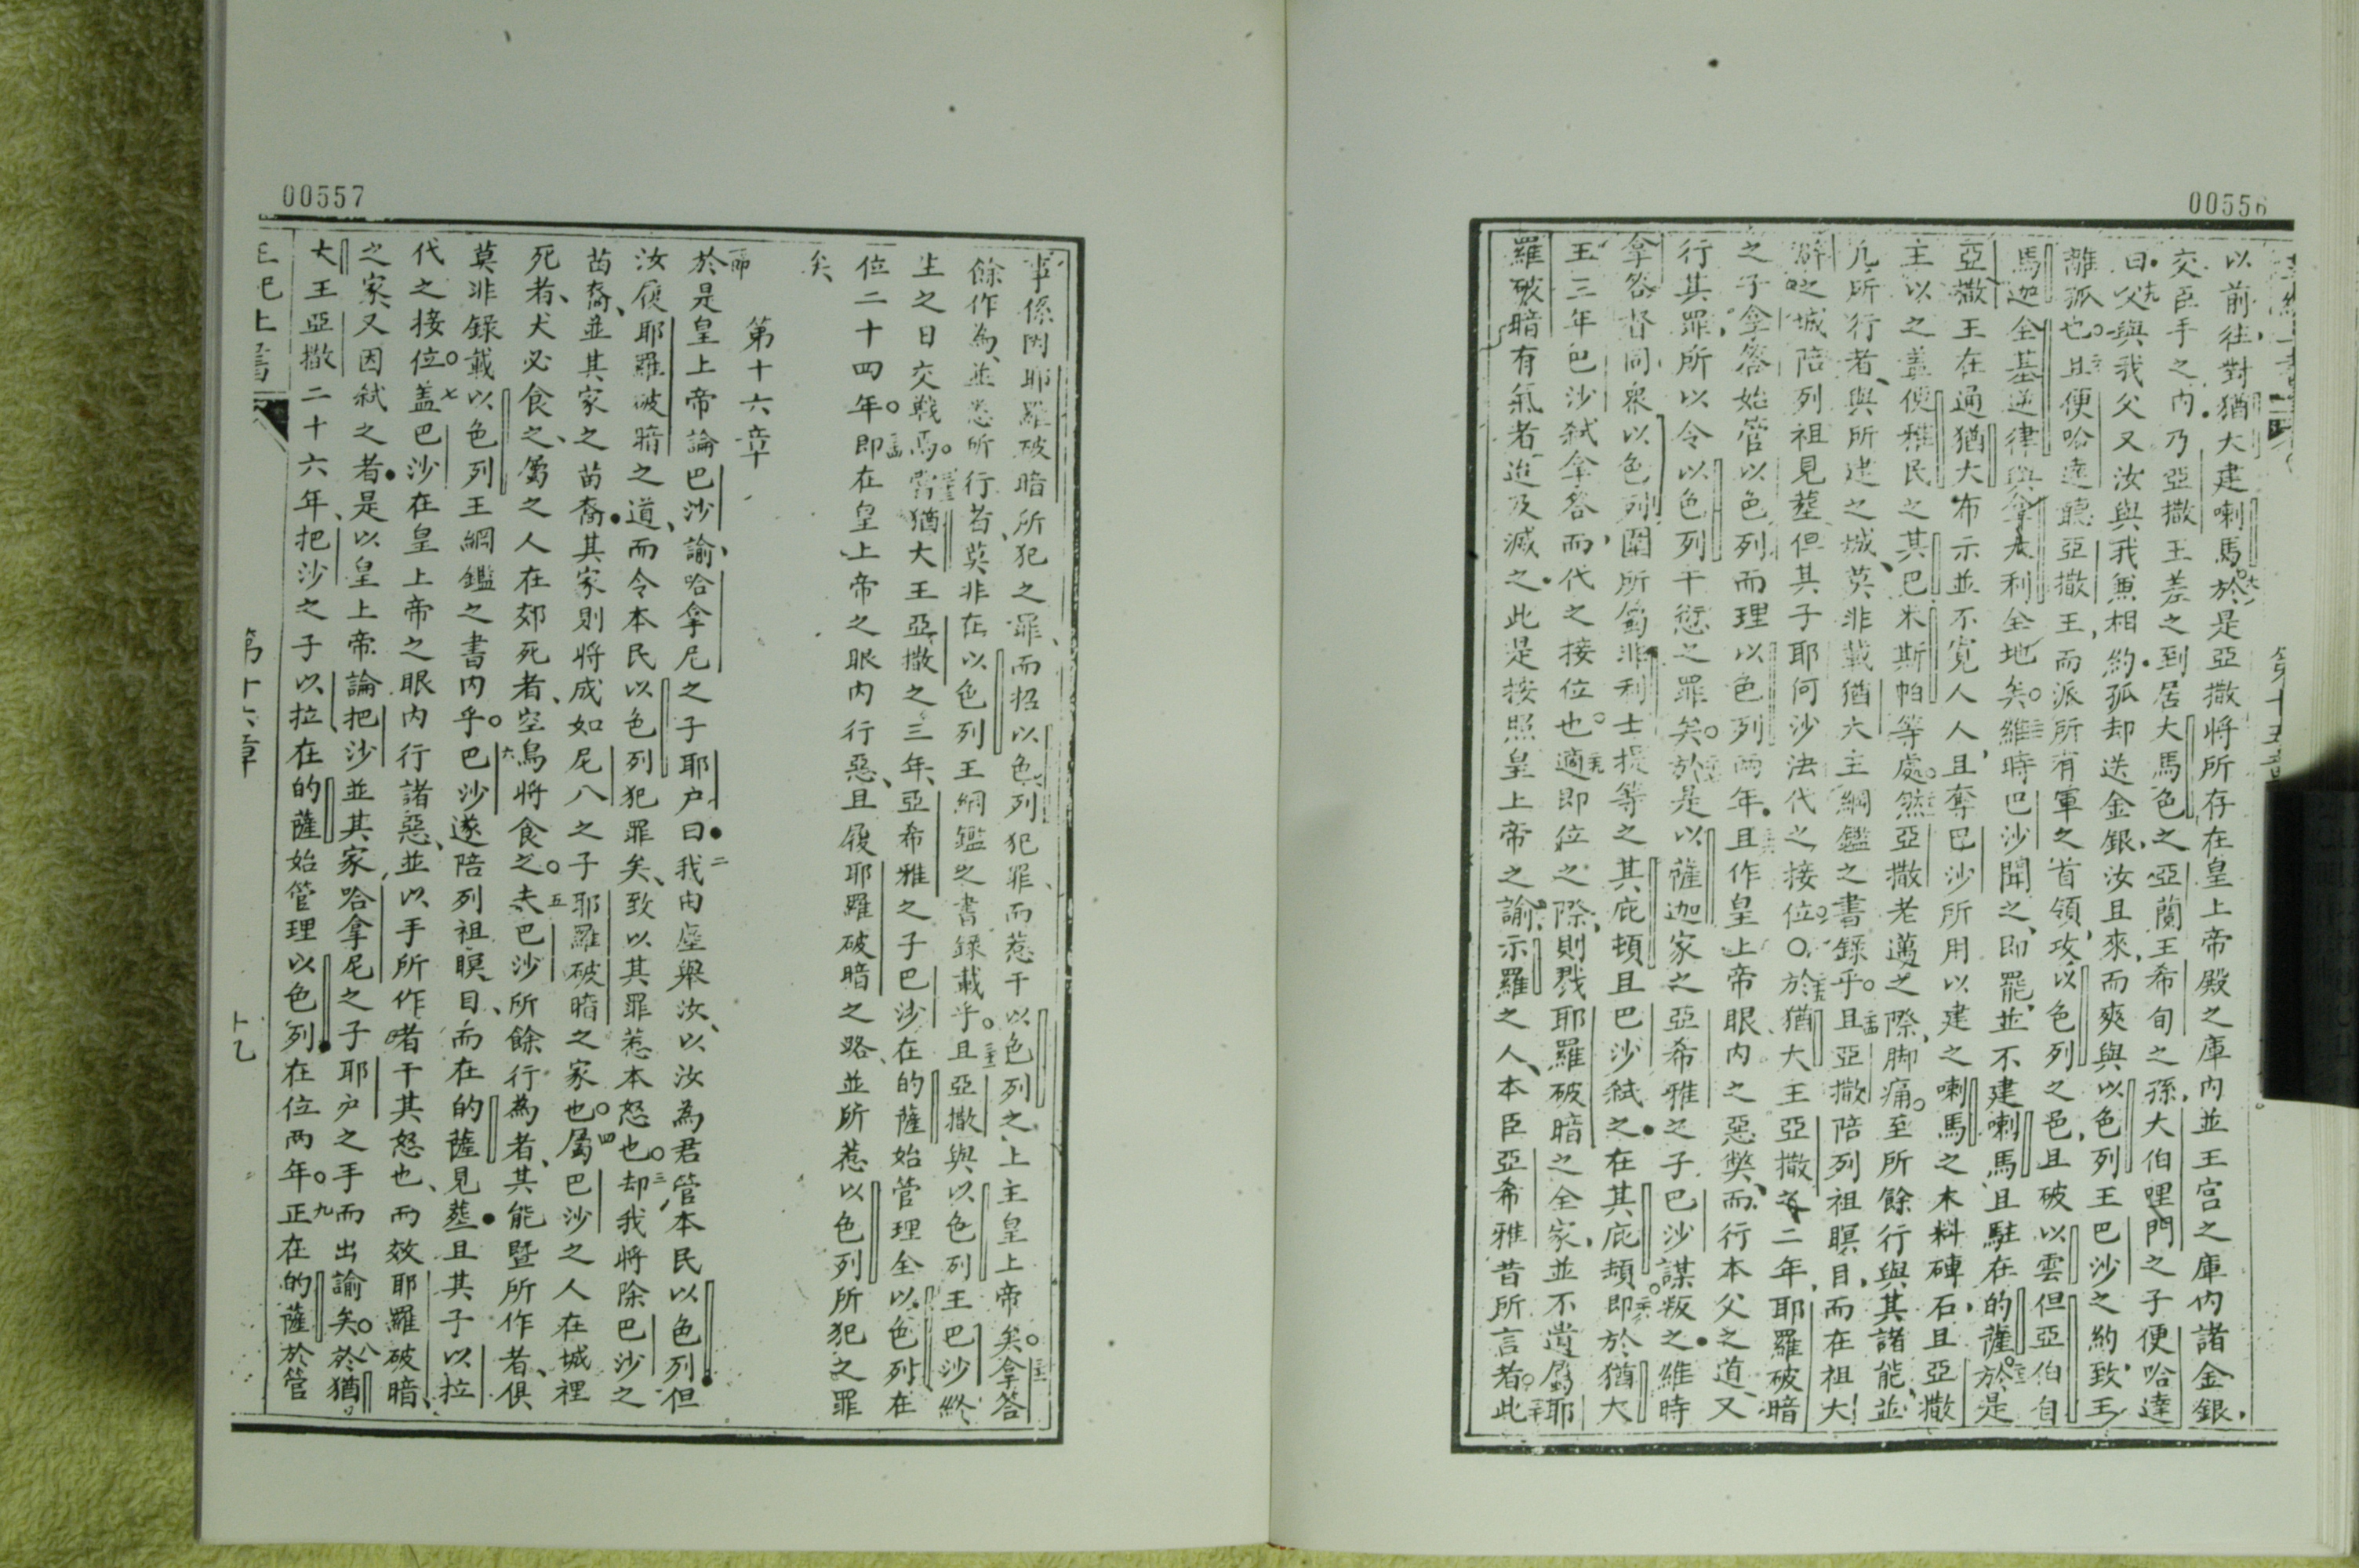 00556
以前往對猶大建喇馬於是亞撒將所存在皇上帝殿之庫內並王宮之庫內諸金銀
交臣手之內乃亞撒王差之到居大馬色之亞蘭王希旬之孫大伯哩門之子便哈達
曰父與我父又汝與我無相約孤却送金銀汝且來而爽與以色列王巴沙之約致王
離孤也且便哈達聽亞撒王而派所有軍之首領攻以色列之邑且破以雲但亞伯自
馬迦全基逆律與拿大利全地矣維時巴沙聞之即罷並不建喇馬且駐在的薩於是
亞撒王在通猶大布示並不寬人人且奪巴沙所用以建之喇馬之木料磚石且亞撒
主以之蓋便雅民之其巴米斯帕等處然亞撒老邁之際脚痛至所餘行與其諸能並
凡所行者與所建之城莫非載猶大主綱鑑之書錄乎且亞撒陪列祖瞑目而在祖大
辟之城陪列祖見塟但其子耶何沙法代之接位於猶大王亞撒二年耶羅破暗
之子拿答始管以色列而理以色列兩年且作皇上帝眼內之惡獘而行本父之道又
行其罪所以令以色列干愆之罪矣於是以薩迦家之亞希雅之子巴沙謀叛之維時
拿答督同衆以色列圍所屬非利士提等之其庇頓且巴沙弒之在其庇頓即於猶大
王三年巴沙弒拿答而代之接位也適即位之際則戮耶羅破暗之全家並不遺屬耶
羅破暗有氣者迨及滅之此是按照皇上帝之諭示羅之人本臣亞希雅昔所言者此
00557
事係因耶羅破暗所犯之罪而招以色列犯罪而惹干以色列之上主皇上帝矣拿答
餘作為並悉所行者莫非在以色列王綱鑑之書錄載乎且亞撒與以色列王巴沙終
生之日交戰焉當猶大王亞撒之三年亞希雅之子巴沙在的薩始管理全以色列在
位二十四年即在皇上帝之眼內行惡且履耶羅破暗之路並所惹以色列所犯之罪
矣
第十六章
於是皇上帝諭巴沙諭哈拿尼之子耶户曰二我由塵舉汝以汝為君管本民以色列但
汝履耶羅破暗之道而令本民以色列犯罪矣致以其罪惹本怒也三却我將除巴沙之
苗裔並其家之苗裔其家則將成如尼八之子耶羅破暗之家也四屬巴沙之人在城裡
死者犬必食之屬之人在郊死者空鳥將食之五夫巴沙所餘行為者其能暨所作者俱
莫非錄載以色列王綱鑑之書內乎六巴沙遂陪列祖瞑目而在的薩見塟且其子以拉
代之接位七盖巴沙在皇上帝之眼內行諸惡並以手所作者干其怒也而效耶羅破暗
之家又因弒之者是以皇上帝論把沙並其家哈拿尼之子耶户之手而出諭矣八於猶
大王亞撒二十六年把沙之子以拉在的薩始管理以色列在位两年九正在的薩於管
王紀上書
第十六章